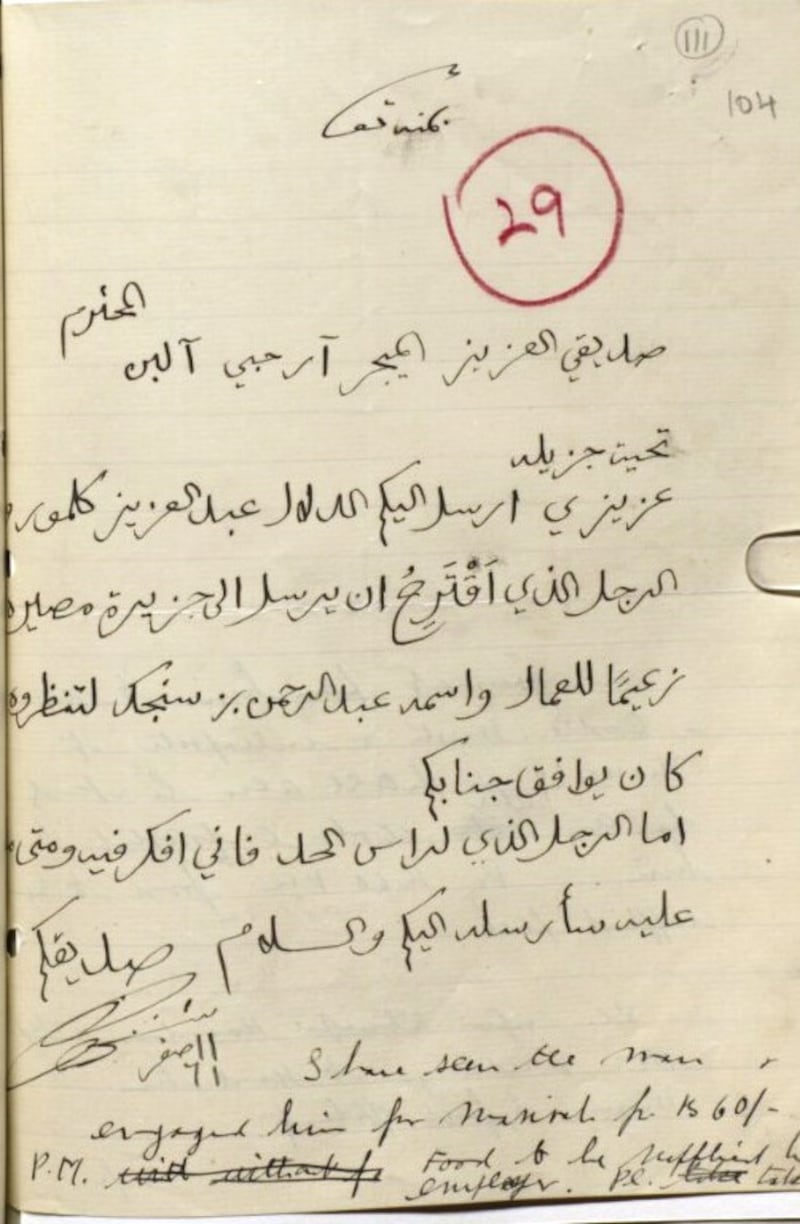 111
104
29
المحترم
صديقي العزيز الميجر آر جي آلبن
تحيت جزيله
عزيزي ارسل اليكم الدلال عبدالعزيز
الرجل الذي اَقْتَرِحُ ان يرسل الى جزيرة مصيره
زعيمًا للعمال واسمه عبدالرحمن بن سنجك لتنظروه
كان يوافق جنابكم
اما الرجل الذي لراس الحد فاني افكر فيه ومتى
عليه سأرسله اليكم والسلام صديقكم
١١ صفر
٦١
I have seen the man
engaged him for Masirah for Rs 60/-
P.M. Food to be supplied
employer. Pl.